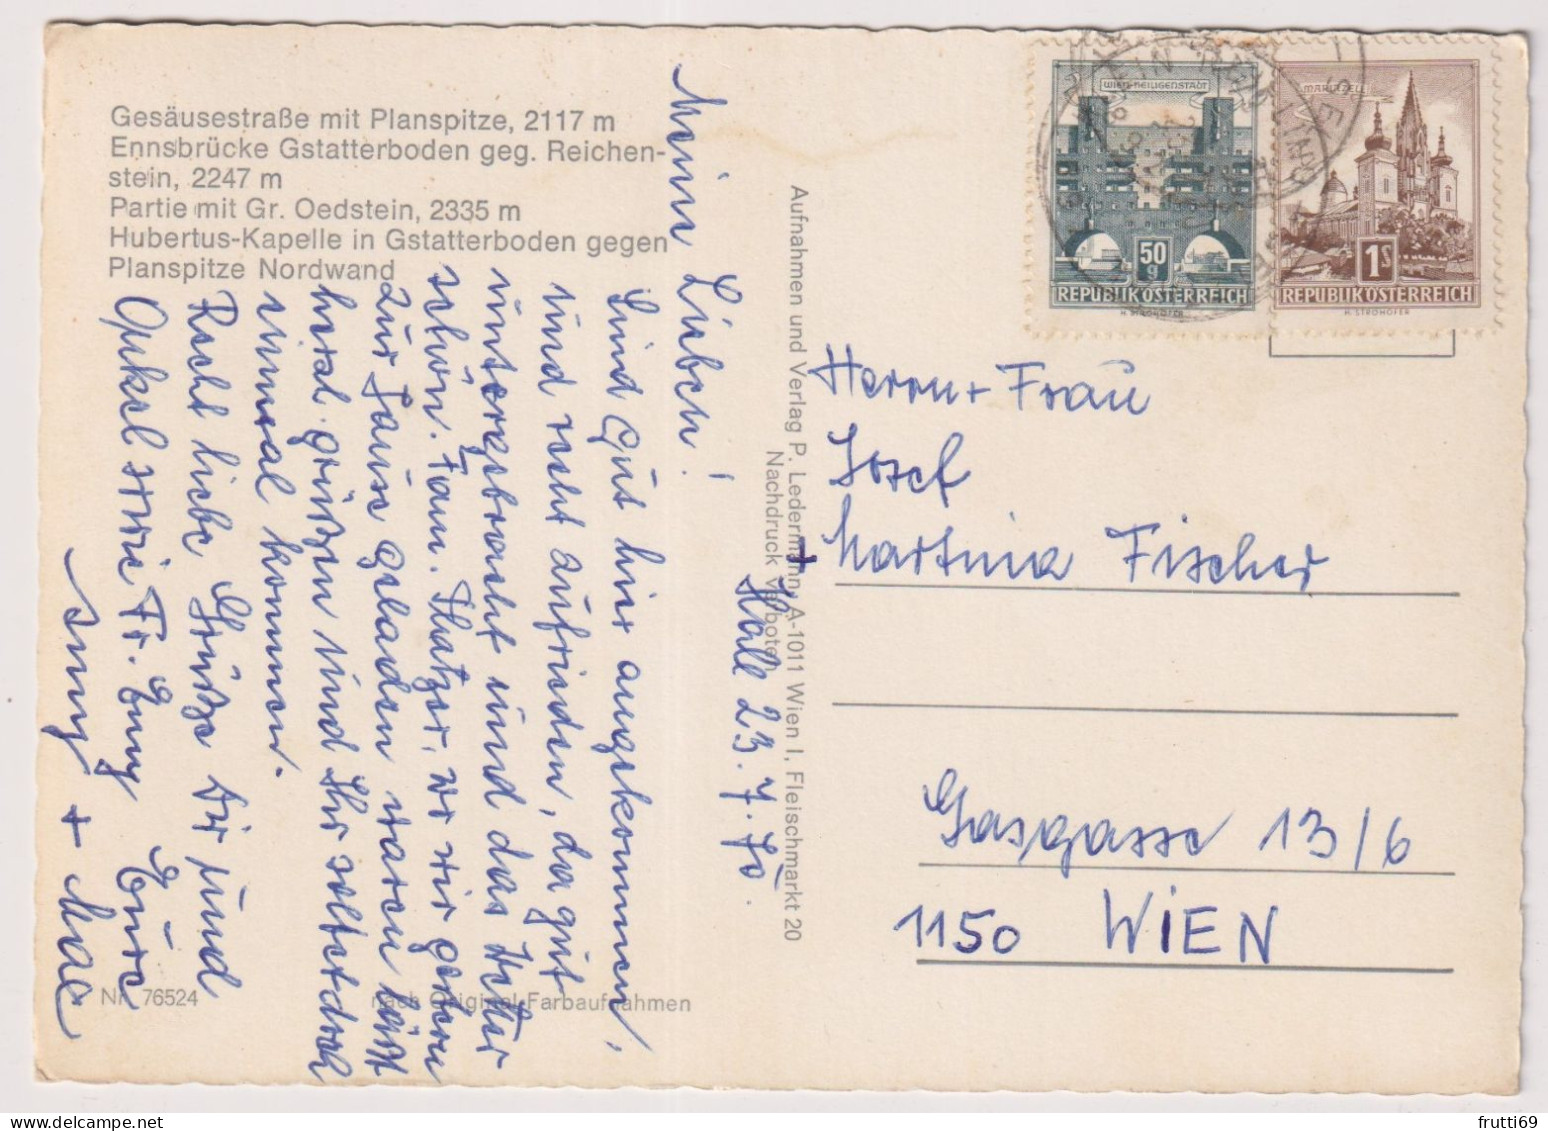 Gesäusestraße mit Planspitze, 2117 m
Ennsbrücke Gstatterboden geg. Reichen-
stein, 2247 m
Partie mit Gr. Oedstein, 2335 m
Hubertus-Kapelle in Gstatterboden gegen
Planspitze Nordwand
Meine Lieben!
Hall 23. 7. 70.
Sind gut hier angekommen,
und recht zufrieden, da gut
untergebracht und das Wetter
schön. Fam. Thatzer, wo wir gestern
zur Jause geladen waren läßt
herzl. grüßen und Ihr sollt doch
einmal kommen.
Recht liebe Grüße Dir und
Onkel sowie Fr. Emy Eure
+
Nr. 76524
nach Original-Farbaufnahmen
Aufnahmen und Verlag P. Ledermann, A-1011 Wien I, Fleischmarkt 20
Nachdruck verboten
WIEN-HEILIGENSTADT
50
g
REPUBLIK ÖSTERREICH
H. STROHOFER
MARIAZELL
1S
REPUBLIK ÖSTERREICH
H. STROHOFER
Herrn + Frau
Josef
+ Martina Fischer
Gasgasse 13/6
1150 WIEN
frutti69